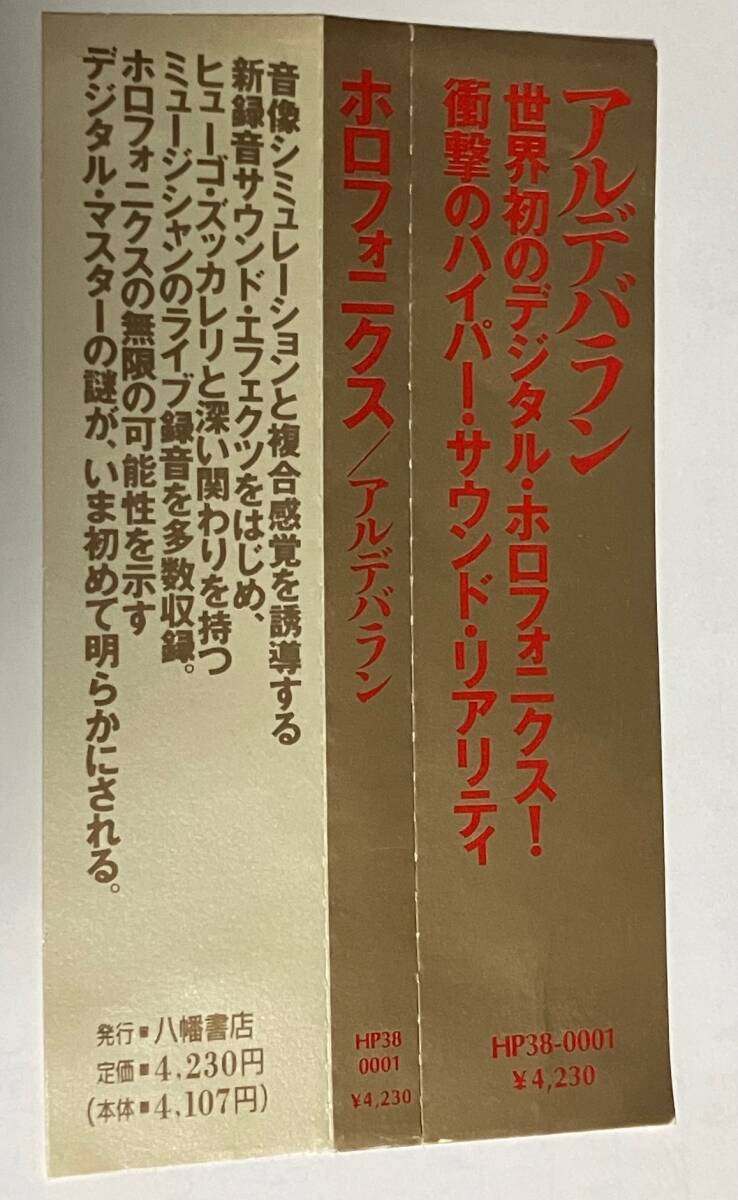 アルデバラン
世界初のデジタル・ホロフォニクス!
衝撃のハイパー・サウンド・リアリティ
HP38-0001
¥4,230
ホロフォニクス/アルデバラン
HP38
0001
¥4,230
音像シミュレーションと複合感覚を誘導する
新録音サウンド・エフェクツをはじめ、
ヒューゴ・ズッカレリと深い関わりを持つ
ミュージシャンのライブ録音を多数収録。
ホロフォニクスの無限の可能性を示す
デジタル・マスターの謎が、いま初めて明らかにされる。
発行■八幡書店
定価■4,230円
(本体■4,107円)